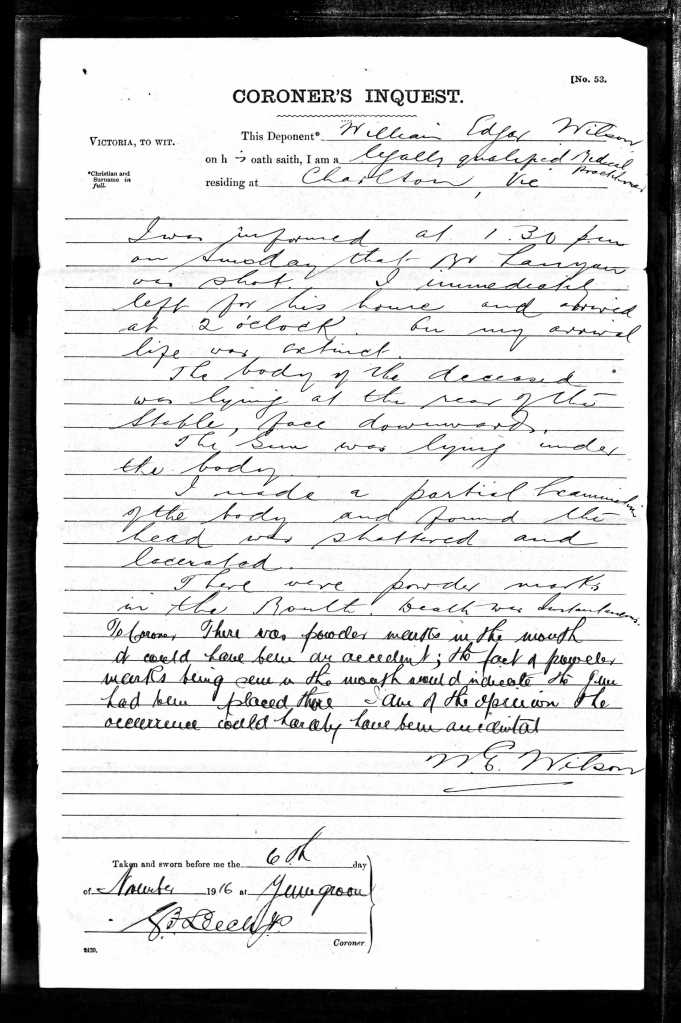 [No. 53.
CORONER'S INQUEST.
VICTORIA, TO WIT.
*Christian and Surname in full.
This Deponent* William Edgar Wilson
on his oath saith, I am a legally qualified Medical Practitioner
residing at Charlton, Vic
I was informed at 1.30 p.m
on Sunday that Mr Lanyon
was shot. I immediately
left for his house and arrived
at 2 o'clock. On my arrival
life was extinct.
The body of the deceased
was lying at the rear of the
Stable, face downwards.
The Gun was lying under
the body
I made a partial Examination
of the body and found the
head was shattered and
lacerated.
There were powder marks
in the Mouth. Death was Instantaneous.
To Coroner There was powder marks in the mouth
it could have been an accident; the fact of powder
marks being seen in the mouth would indicate the Gun
had been placed there I am of the opinion the
occurrence could hardly have been accidental
W. E. Wilson
Taken and sworn before me the 6th day
of November 1916 at Yeungroon
JP
Coroner
2420.